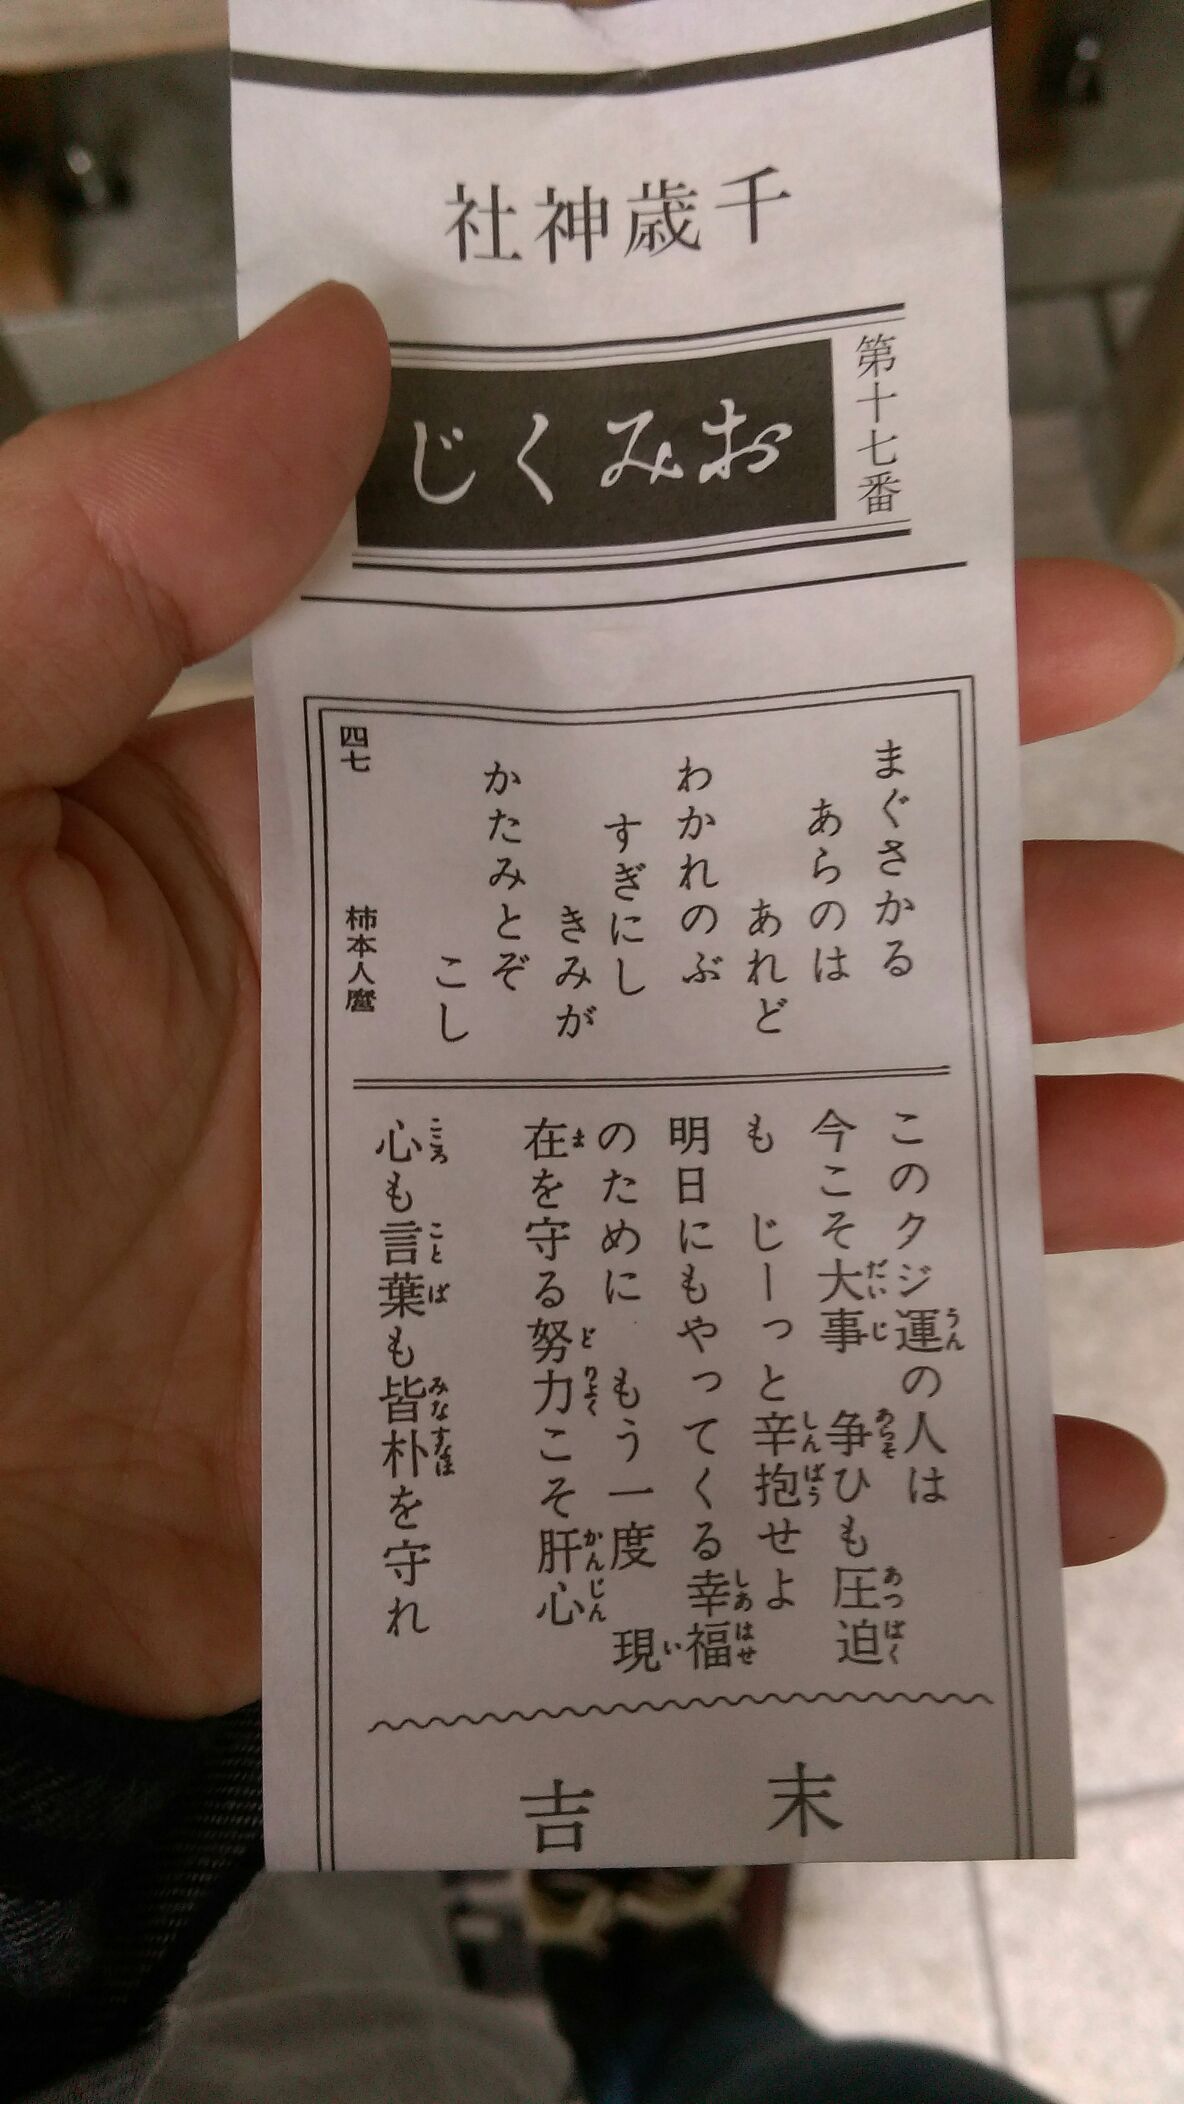 千歳神社
第十七番
おみくじ
まぐさかる
あらのは
あれど
わかれのぶ
すぎにし
きみが
かたみとぞ
こし
四七 柿本人麿
このクジ運の人は
今こそ大事 争ひも圧迫
も じーっと辛抱せよ
明日にもやってくる幸福
のために もう一度 現
在を守る努力こそ肝心
心も言葉も皆朴を守れ
末吉